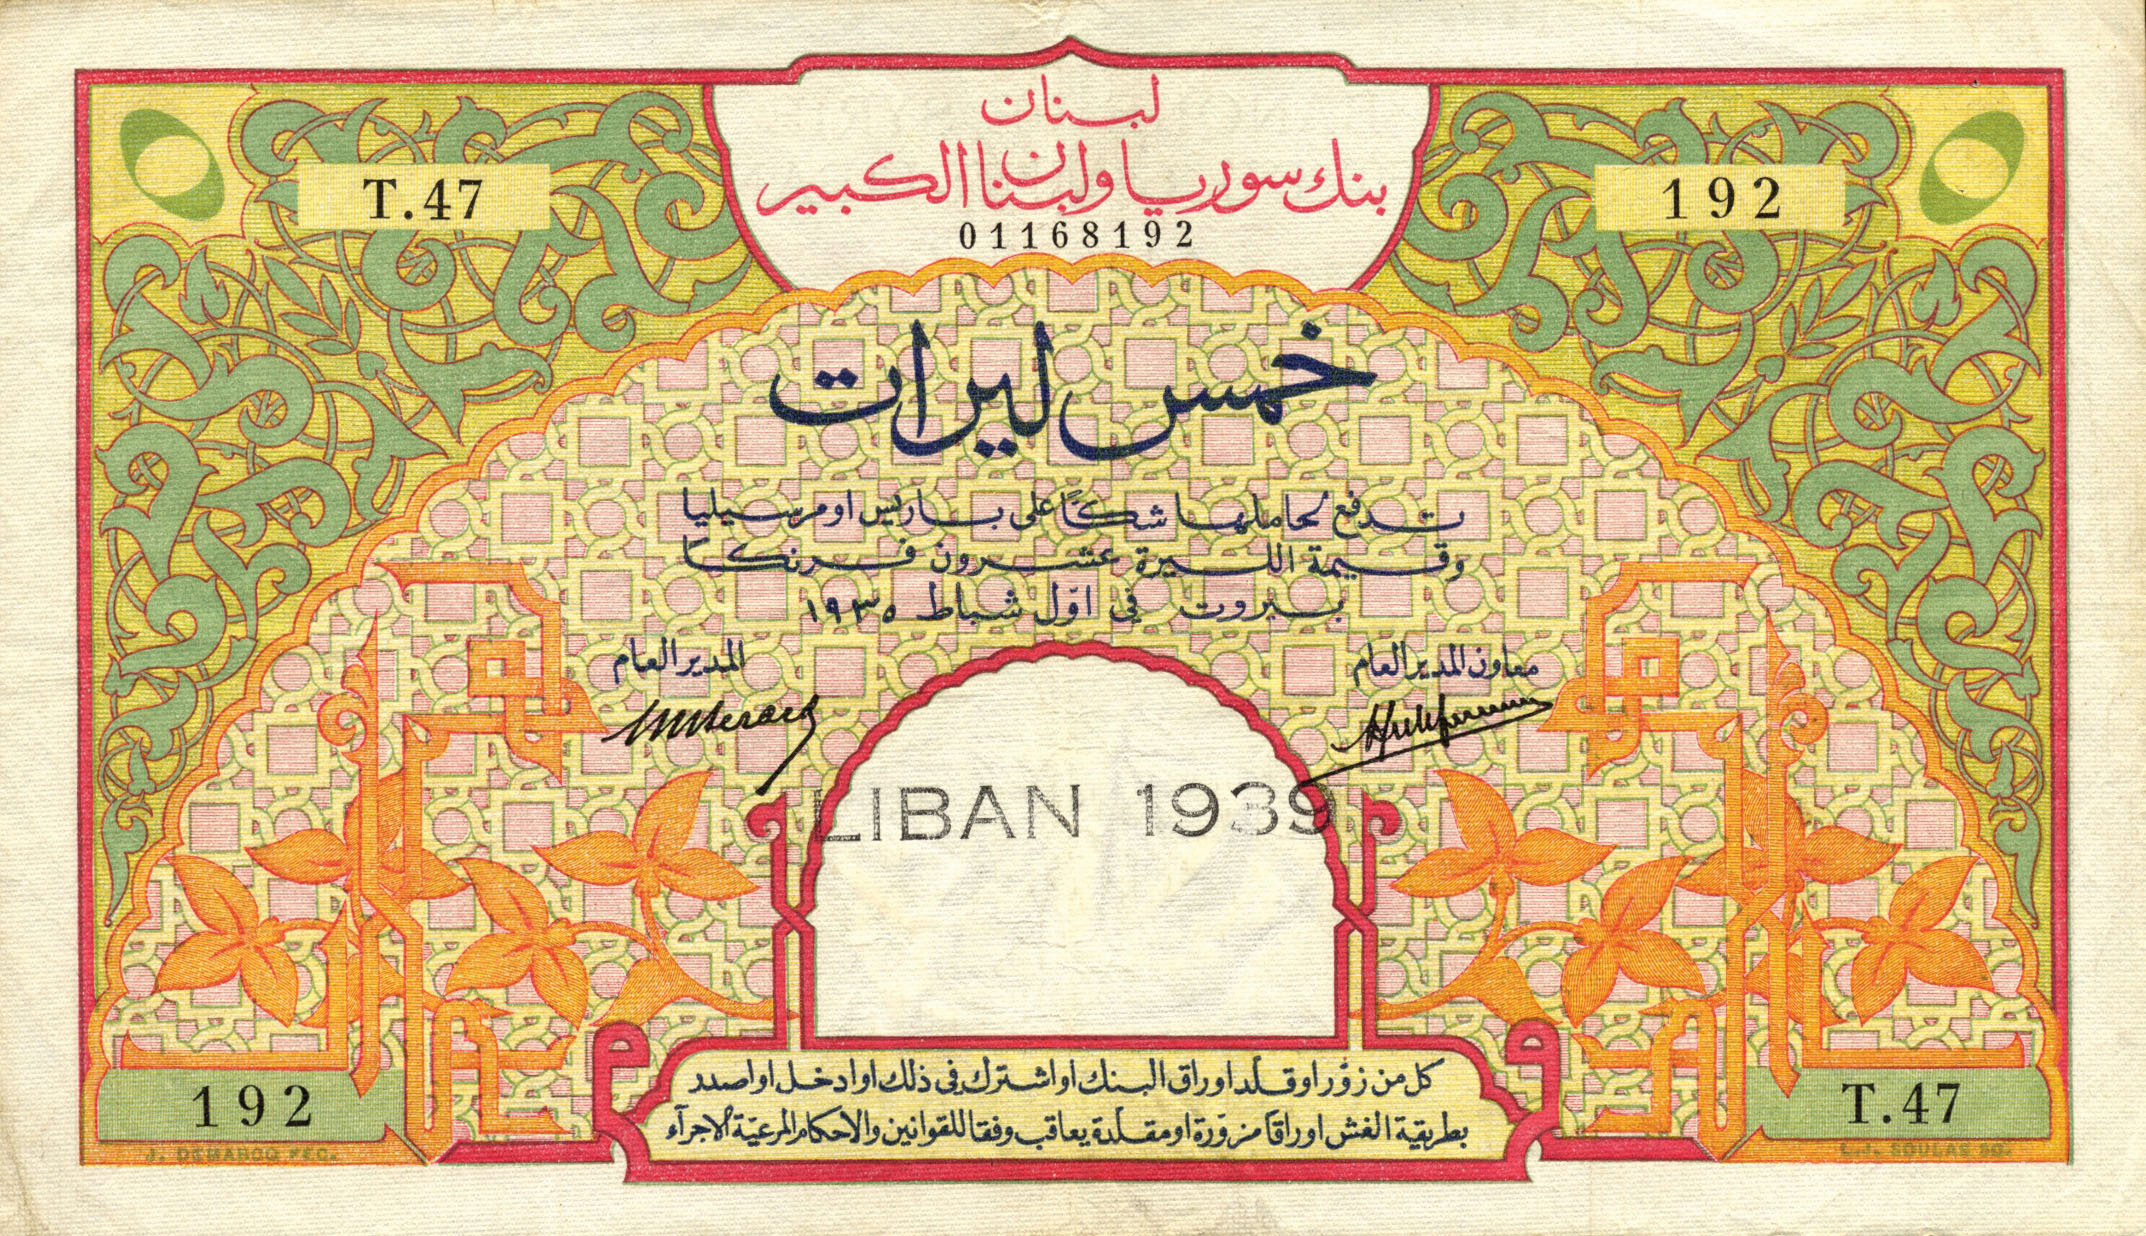 لبنان
بنك سوريا ولبنان الكبير
01168192
T.47
192
خمس ليرات
تدفع لحاملها شكاً على باريس او مرسيليا
وقيمة الليرة عشرون فرنكاً
بيروت في اوّل شباط ١٩٣٥
معاون المدير العام
المدير العام
LIBAN 1939
كل من زوّر او قلّد اوراق البنك او اشترك في ذلك او ادخل او اصدر
بطريقة الغش اوراقاً مزوّرة او مقلّدة يعاقب وفقا للقوانين والاحكام المرعيّة الاجرآء
192
T.47
J. DEMAROQ FEC.
C.J. SOULAS SC.